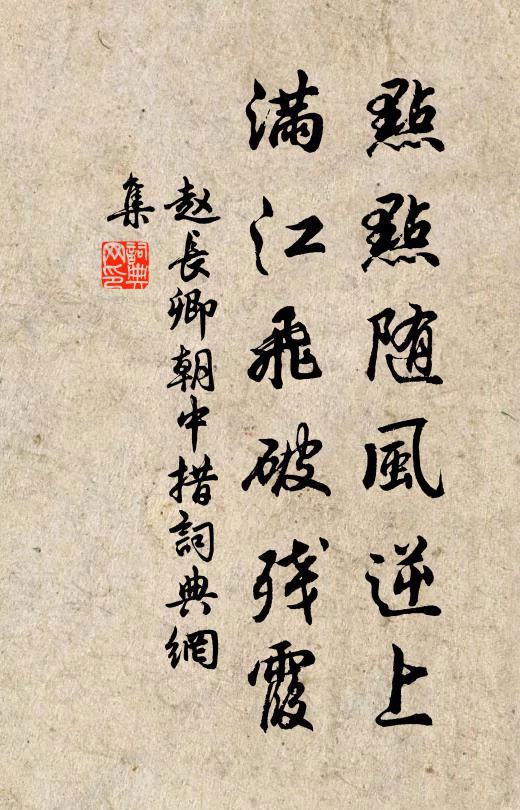 點點随風逆上
满江飛破残霞
赵長卿朝中措詞典網
集
詞典
网印